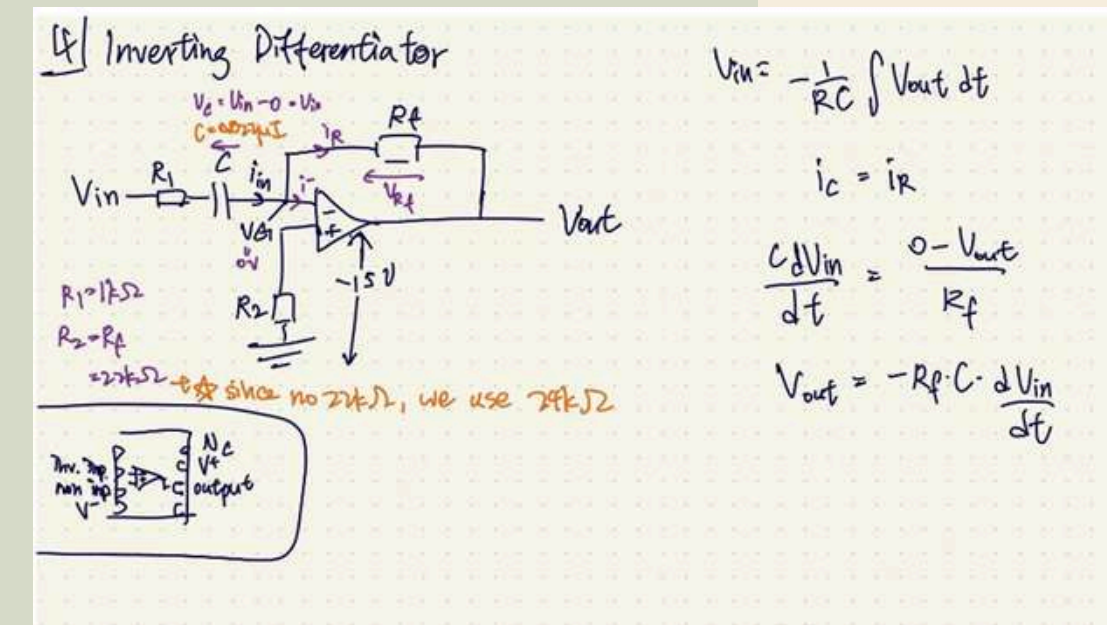 4 Inverting Differentiator
Vc = Vin - 0 = Vin
C = 0.0022μF
R1
C
iin
iR
i-
Rf
VRf
Vin
VG
0V
-
+
Vout
-15V
R2
R1 = 1kΩ
R2 = Rf
= 22kΩ → ☆ since no 22kΩ, we use 24kΩ
Inv. Inp.
non inp
V-
NC
V+
output
Vin = -1/RC ∫ Vout dt
ic = iR
C dVin/dt = 0 - Vout/Rf
Vout = -Rf · C · dVin/dt